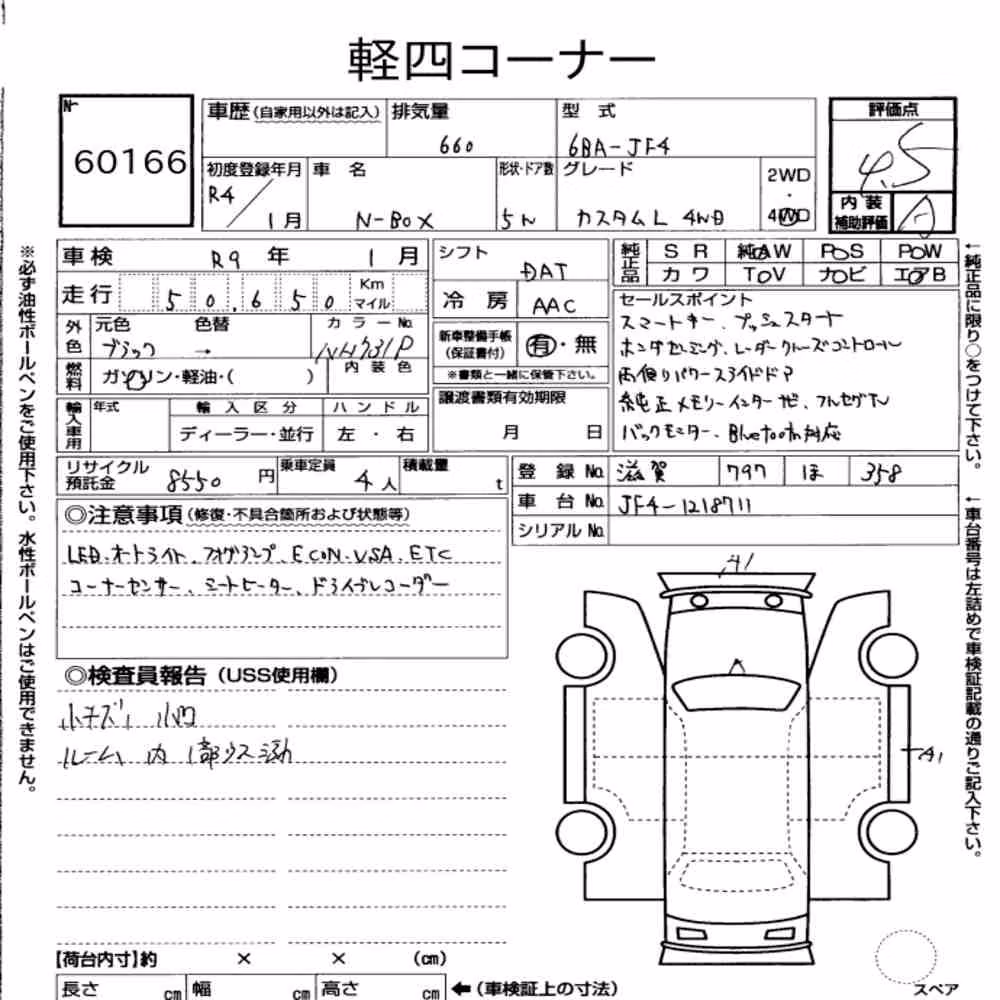 軽四コーナー
No
60166
車歴(自家用以外は記入)
排気量
660
型 式
6BA-JF4
評価点
4.5
初度登録年月
R4/1月
車 名
N-BOX
形状・ドア数
5W
グレード
カスタムL 4WD
2WD
・
4WD
内 装
補助評価
車検 R9 年 1 月
走行 50,650 Km マイル
外色
元色 ブラック
色替 →
カラーNo. NH731P
燃料
ガソリン・軽油・( )
内 装 色
輸入車用
年式
輸 入 区 分
ハ ン ド ル
ディーラー・並行
左 ・ 右
シフト
DAT
冷 房 AAC
新車整備手帳
(保証書付)
有・無
※書類と一緒に保管下さい。
譲渡書類有効期限
月 日
純正品
S R 純AW P S P W
カ ワ T V ナビ エアB
セールスポイント
スマートキー、プッシュスタート
ホンダセンシング、レーダークルーズコントロール
両側パワースライドドア
純正メモリーインターナビ、フルセグTV
バックモニター、Bluetooth対応
リサイクル
預託金
8550 円
乗車定員
4 人
積載量
t
登 録 No. 滋賀 797 ほ 358
車 台 No. JF4-1218711
シリアル No.
◎注意事項(修復・不具合箇所および状態等)
LED・オートライト、フォグランプ、ECON・VSA、ETC
コーナーセンサー、シートヒーター、ドライブレコーダー
◎検査員報告(USS使用欄)
小キズ 小凹
ルーム 内
A1
A1
【荷台内寸】約 × × (cm)
長さ cm 幅 cm 高さ cm
←(車検証上の寸法)
スペア
※必ず油性ボールペンをご使用下さい。水性ボールペンはご使用できません。
←純正品に限り○をつけて下さい。
←車台番号は左詰めで車検証記載の通りご記入下さい。